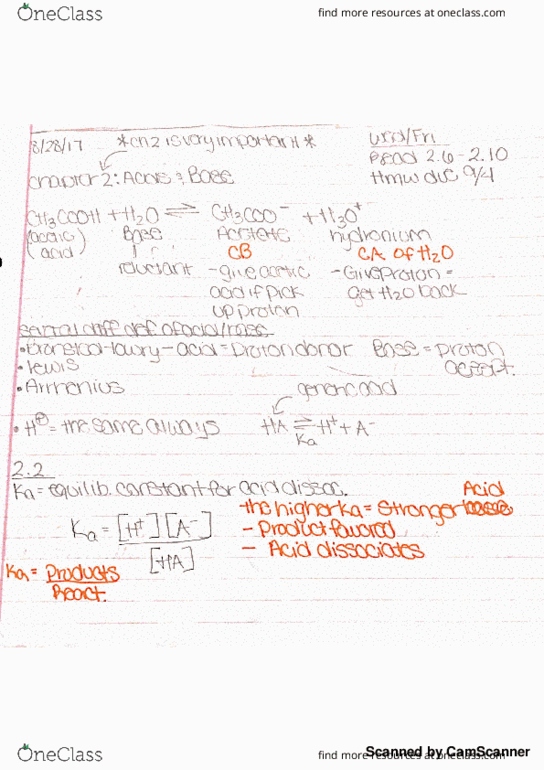 OneClass
find more resources at oneclass.com
8/28/17 *ch 2 is very important* wed/Fri
Read 2.6-2.10
Chapter 2: Acids & Base Hmw due 9/4
CH3COOH + H2O ⇌ CH3COO⁻ + H3O⁺
(acetic acid) Base Acetate hydronium
CB CA of H2O
-give acetic acid if pick up proton
-Give proton = get H2O back
several diff def of acid/base
•Bronsted-lowry - acid = Proton donor Base = proton accept.
•lewis
•Arrhenius generic acid
•H⊕ = the same always HA ⇌ H⁺ + A⁻
Ka
2.2
Ka = equilib. constant for acid dissoc. Acid
-the higher Ka = Stronger
Ka = [H⁺][A⁻] / [HA]
- Product favored
- Acid dissociates
Ka = Products
React.
OneClass
find more resources at oneclass.com
Scanned by CamScanner